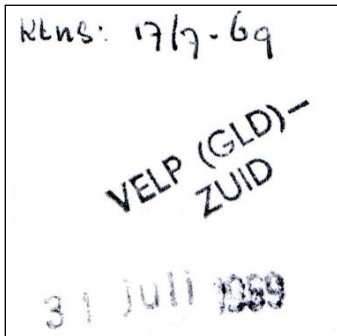 Klns: 17/7-69
VELP (GLD)-
ZUID
31 juli 1969